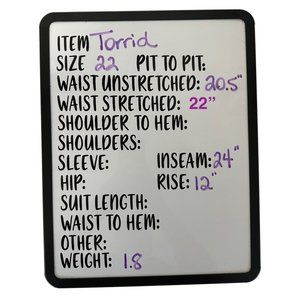 ITEM Torrid
SIZE 22 PIT TO PIT:
WAIST UNSTRETCHED: 20.5"
WAIST STRETCHED: 22”
SHOULDER TO HEM:
SHOULDERS:
SLEEVE: INSEAM: 24"
HIP: RISE: 12"
SUIT LENGTH:
WAIST TO HEM:
OTHER:
WEIGHT: 1.8